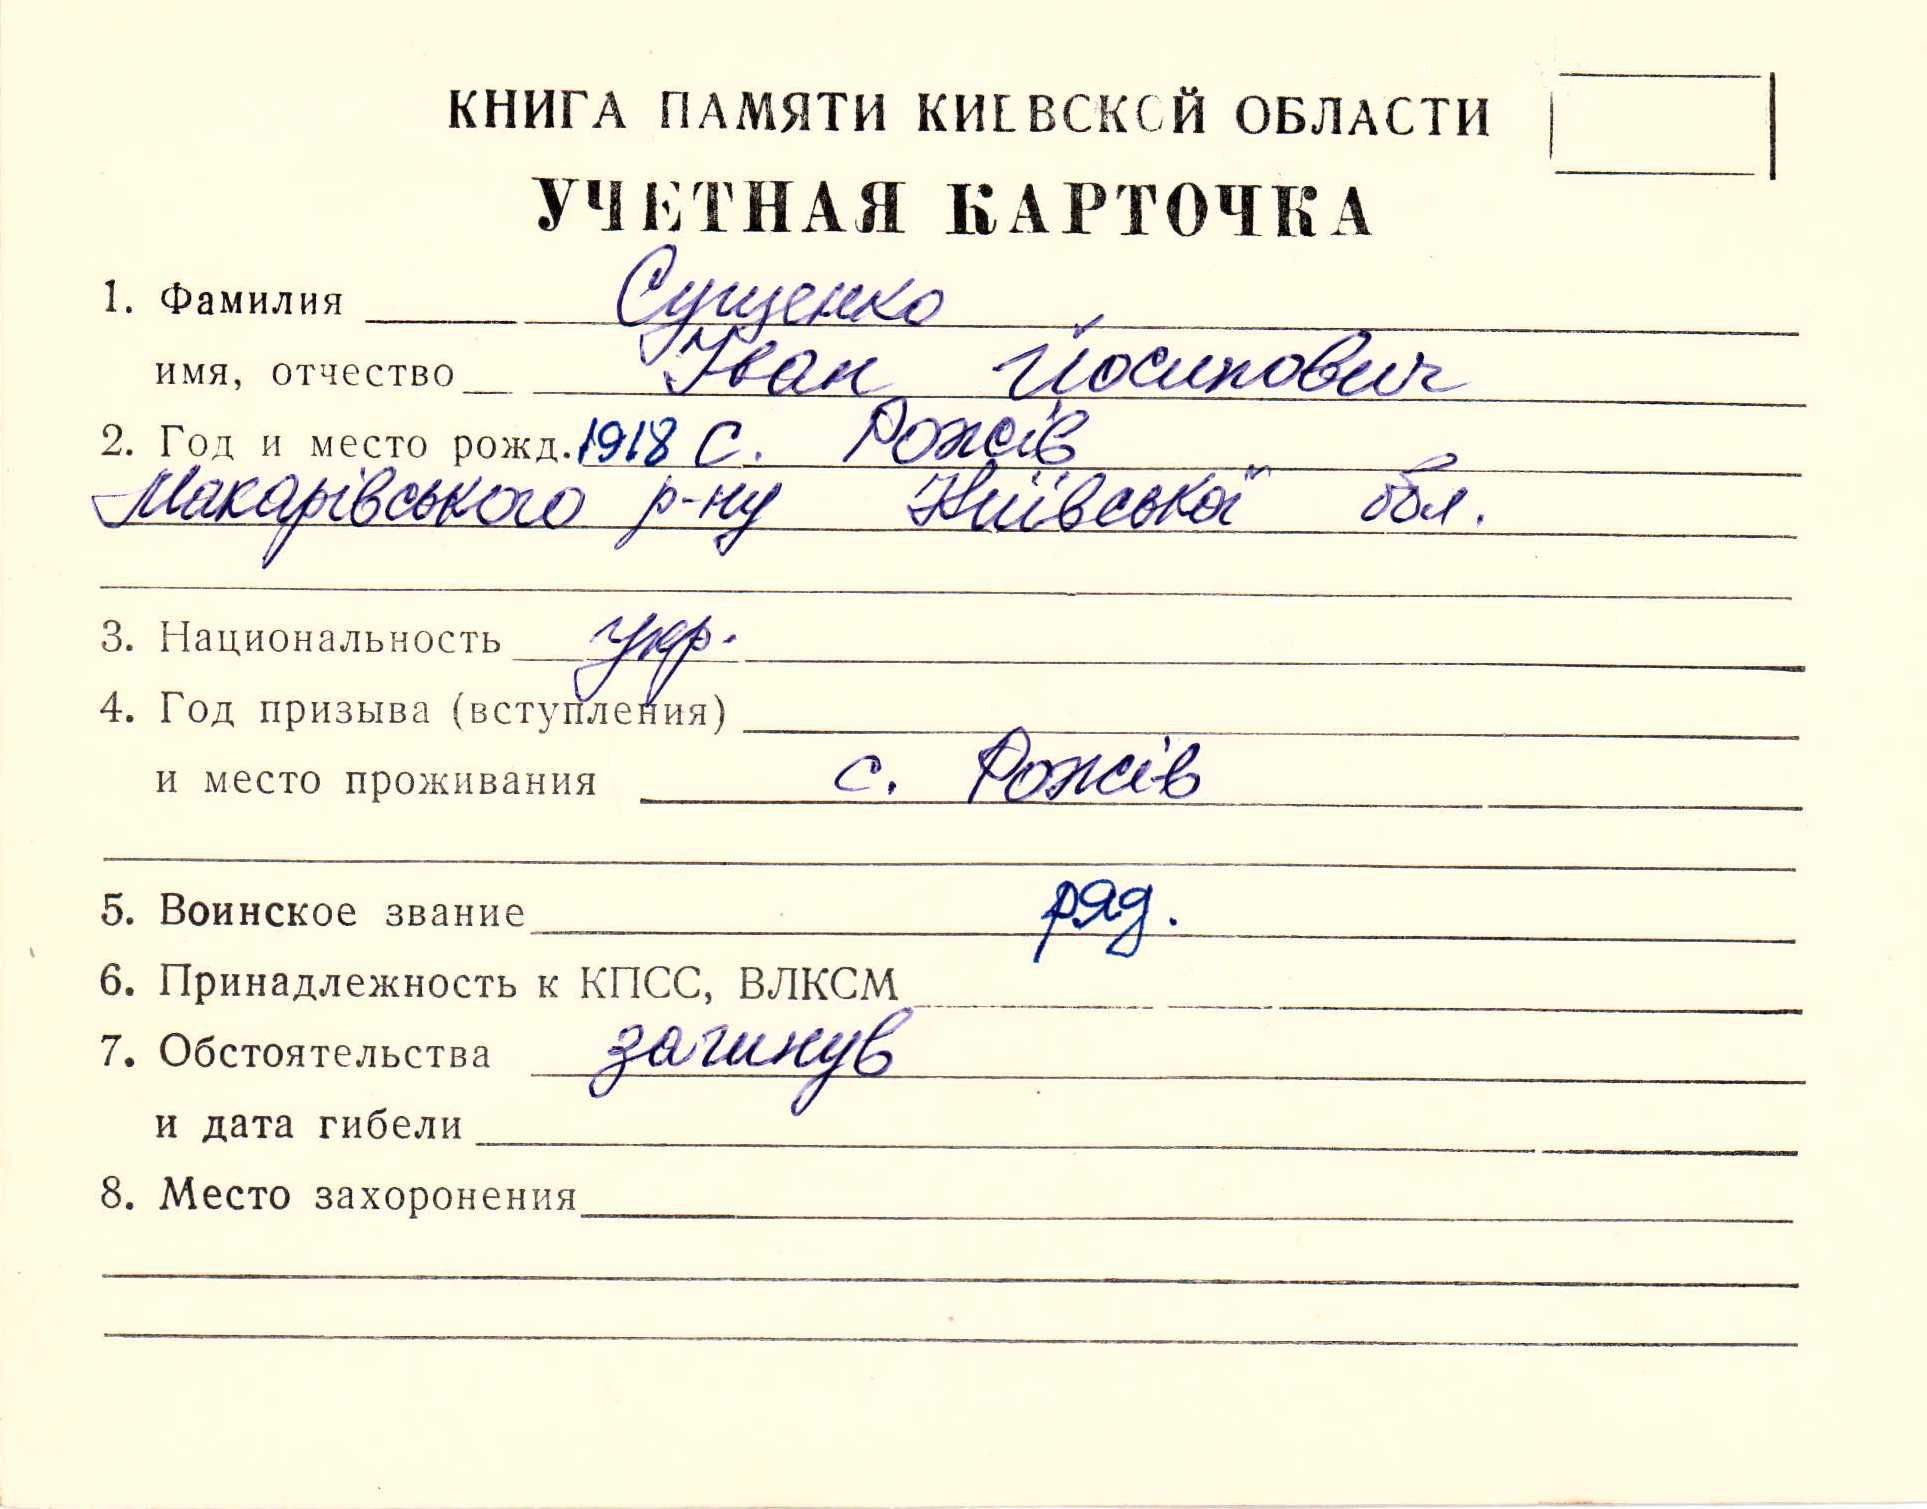 КНИГА ПАМЯТИ КИЕВСКОЙ ОБЛАСТИ
УЧЕТНАЯ КАРТОЧКА
1. Фамилия Сущенко
имя, отчество Іван Йосипович
2. Год и место рожд. 1918 с. Рожів
Макарівського р-ну Київської обл.
3. Национальность укр.
4. Год призыва (вступления)
и место проживания с. Рожів
5. Воинское звание ряд.
6. Принадлежность к КПСС, ВЛКСМ
7. Обстоятельства загинув
и дата гибели
8. Место захоронения